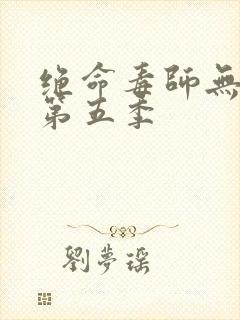 绝命毒師無
第五季
劉夢瑶